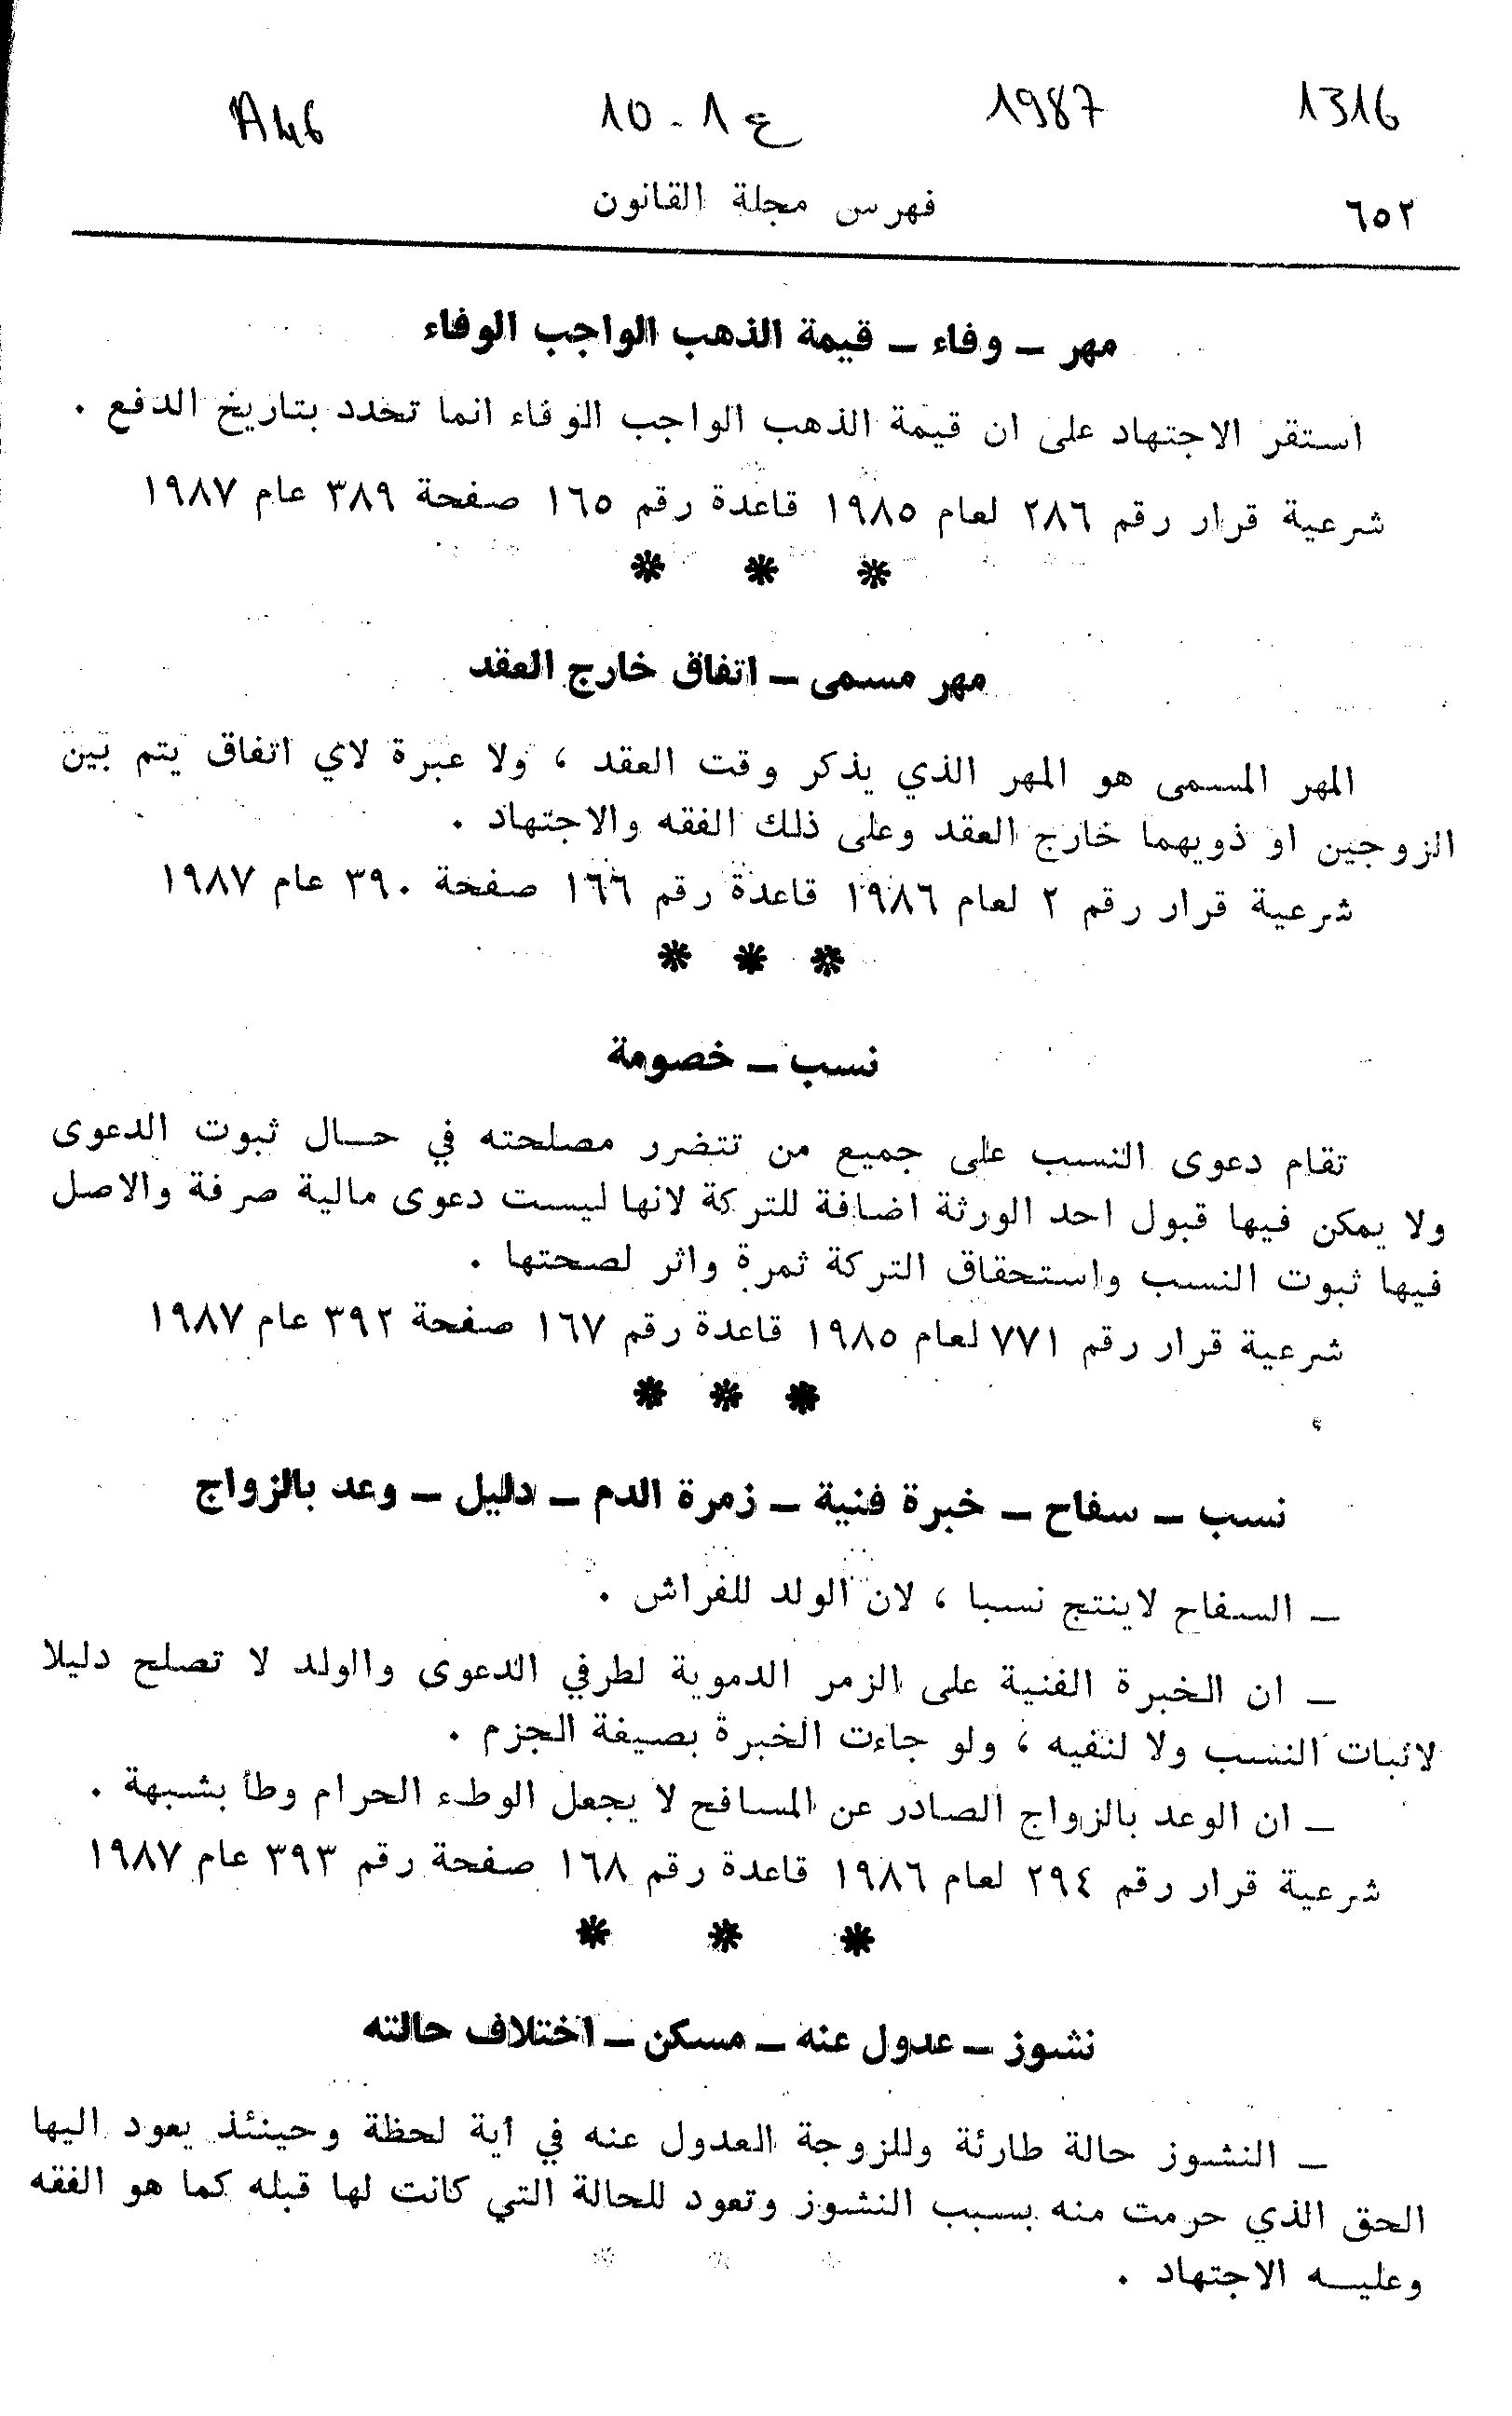 1316 1987 ع 1 - 10
٦٥٢ فهرس مجلة القانون
مهر ــ وفاء ــ قيمة الذهب الواجب الوفاء
استقر الاجتهاد على ان قيمة الذهب الواجب الوفاء انما تحدد بتاريخ الدفع .
شرعية قرار رقم ٢٨٦ لعام ١٩٨٥ قاعدة رقم ١٦٥ صفحة ٣٨٩ عام ١٩٨٧
* * *
مهر مسمى ــ اتفاق خارج العقد
المهر المسمى هو المهر الذي يذكر وقت العقد ، ولا عبرة لاي اتفاق يتم بين
الزوجين او ذويهما خارج العقد وعلى ذلك الفقه والاجتهاد .
شرعية قرار رقم ٢ لعام ١٩٨٦ قاعدة رقم ١٦٦ صفحة ٣٩٠ عام ١٩٨٧
* * *
نسب ــ خصومة
تقام دعوى النسب على جميع من تتضرر مصلحته في حال ثبوت الدعوى
ولا يمكن فيها قبول احد الورثة اضافة للتركة لانها ليست دعوى مالية صرفة والاصل
فيها ثبوت النسب واستحقاق التركة ثمرة واثر لصحتها .
شرعية قرار رقم ٧٧١ لعام ١٩٨٥ قاعدة رقم ١٦٧ صفحة ٣٩٢ عام ١٩٨٧
* * *
نسب ــ سفاح ــ خبرة فنية ــ زمرة الدم ــ دليل ــ وعد بالزواج
ــ السفاح لاينتج نسبا ، لان الولد للفراش .
ــ ان الخبرة الفنية على الزمر الدموية لطرفي الدعوى والولد لا تصلح دليلا
لاثبات النسب ولا لنفيه ، ولو جاءت الخبرة بصيغة الجزم .
ــ ان الوعد بالزواج الصادر عن المسافح لا يجعل الوطء الحرام وطأ بشبهة .
شرعية قرار رقم ٢٩٤ لعام ١٩٨٦ قاعدة رقم ١٦٨ صفحة رقم ٣٩٣ عام ١٩٨٧
* * *
نشوز ــ عدول عنه ــ مسكن ــ اختلاف حالته
ــ النشوز حالة طارئة وللزوجة العدول عنه في أية لحظة وحينئذ يعود اليها
الحق الذي حرمت منه بسبب النشوز وتعود للحالة التي كانت لها قبله كما هو الفقه
وعليه الاجتهاد .